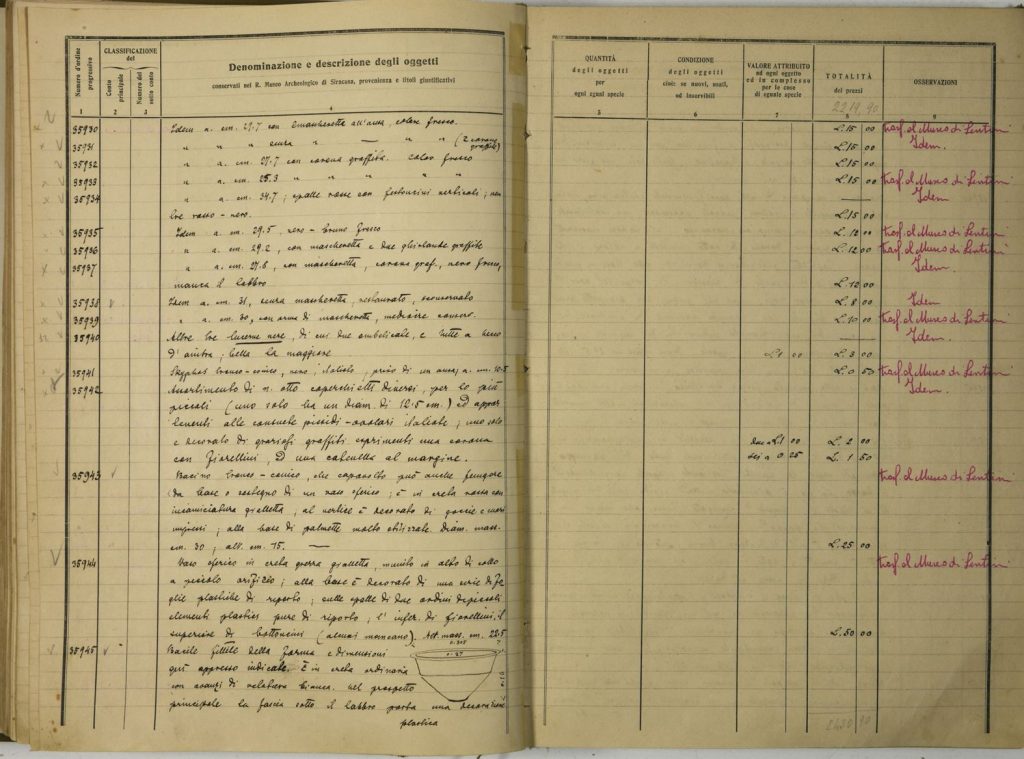 Numero d'ordine progressivo
CLASSIFICAZIONE del
Conto principale
Numero del sotto conto
Denominazione e descrizione degli oggetti
conservati nel R. Museo Archeologico di Siracusa, provenienza e titoli giustificativi
1 2 3 4
35930 Idem a. cm. 29.7 con 2 mascherette all'ansa, colore fresco.
35931 " " " senza " — " " (2 corone graffite)
35932 " a. cm. 27.7 con corona graffita. Color fresco
35933 " a. cm. 25.3 " " " " "
35934 " a. cm. 34.7; spalle rosse con festoncini verticali;
tre rosso-nero.
35935 Idem a. cm. 29.5, nero-bruno fresco
35936 " a. cm. 29.2, con mascherette e due ghirlande graffite
35937 " a. cm. 27.8, con mascherette, corona graf., nero fresco,
manca il labbro
35938 Idem a. cm. 31, senza mascherette, restaurato, sconservato
35939 " a. cm. 30, con orme di mascherette, mediocre conserv.
35940 Altre tre lucerne nere, di cui due ombelicate, e tutte a becco
d'ancora; bella la maggiore
35941 Skyphos tronco-conico, nero, italiota, privo di un'ansa; a. cm. 10.5
35942 Assortimento di n. otto coperchietti diversi, per lo più
piccoli (uno solo ha un diam. di 12.5 cm.) ed appar-
tenenti alle consuete pissidi-ovolari italiote; uno solo
è decorato di graziosi graffiti esprimenti una corona
con fiorellini, ed una catenella al margine.
35943 Bacino tronco-conico, che capovolto può anche fungere
da base o sostegno di un vaso sferico; è in creta rossa con
incamiciatura gialletta; al vertice è decorato di goccie e cuori
impressi; alla base di palmette molto stilizzate. Diam. mass.
cm. 30; alt. cm. 15. —
35944 Vaso sferico in creta grezza gialletta, munito in alto di collo
a piccolo orifizio; alla base è decorato di una serie di fo-
glie plastiche di riporto; sulle spalle di due ordini di piccoli
elementi plastici pure di riporto; l'infer. di fiorellini, il
superiore di bottoncini (alcuni mancano). Alt. mass. cm. 22.5
35945 Bacile fittile della forma e dimensioni
qui appresso indicate. È in creta ordinaria
con avanzi di velatura bianca. Nel prospetto
principale la fascia sotto il labbro porta una decorazione
plastica
QUANTITÀ degli oggetti per ogni singol specie
CONDIZIONE degli oggetti cioè: se nuovi, usati, od inservibili
VALORE ATTRIBUITO ad ogni oggetto ed in complesso per le cose di eguale specie
TOTALITÀ dei prezzi
OSSERVAZIONI
2219,90
5 6 7 8 9
L. 15 00 trasf. al Museo di Lentini
L. 15 00 Idem.
L. 15 00
L. 15 00 trasf. al Museo di Lentini
Idem
L. 15 00
L. 12 00 trasf. al Museo di Lentini
L. 12 00 trasf. al Museo di Lentini
Idem
L. 12 00
L. 8 00 Idem
L. 10 00 trasf. al Museo di Lentini
Idem.
L. 1 00 L. 3 00
L. 0 50 trasf. al Museo di Lentini
Idem.
due a L. 1 00 L. 2 00
sei a 0 25 L. 1 50
trasf. al Museo di Lentini
L. 25 00
trasf. al Museo di Lentini
L. 50 00